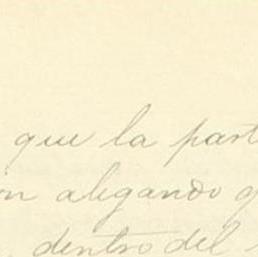 que la part
on alegando q
dentro del